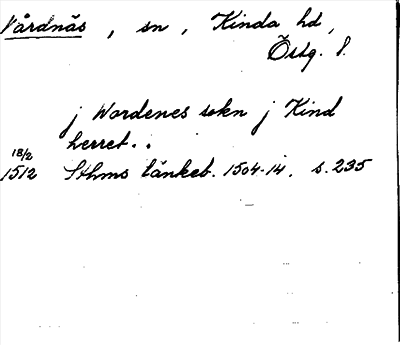 Vårdnäs, sn, Kinda hd,
Östg. l.
j Wordenes sokn j Kind
herret..
18/2
1512 Sthms tänkeb. 1504-14. s. 235